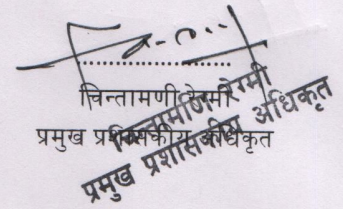 चिन्तामणी रेग्मी
प्रमुख प्रशासकीय अधिकृत
चिन्तामणि रेग्मी
प्रमुख प्रशासकीय अधिकृत